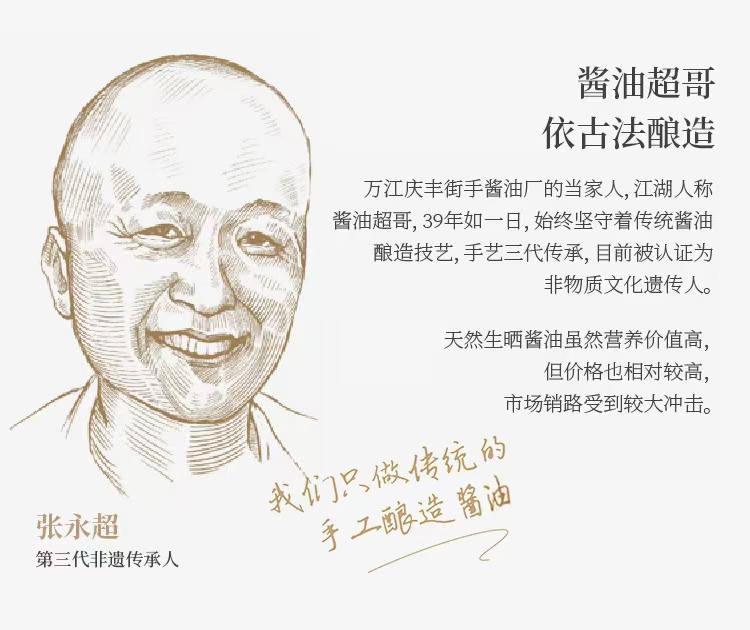 酱油超哥
依古法酿造
万江庆丰街手酱油厂的当家人，江湖人称
酱油超哥，39年如一日，始终坚守着传统酱油
酿造技艺，手艺三代传承，目前被认证为
非物质文化遗传人。
天然生晒酱油虽然营养价值高，
但价格也相对较高，
市场销路受到较大冲击。
我们只做传统的
手工酿造酱油
张永超
第三代非遗传承人